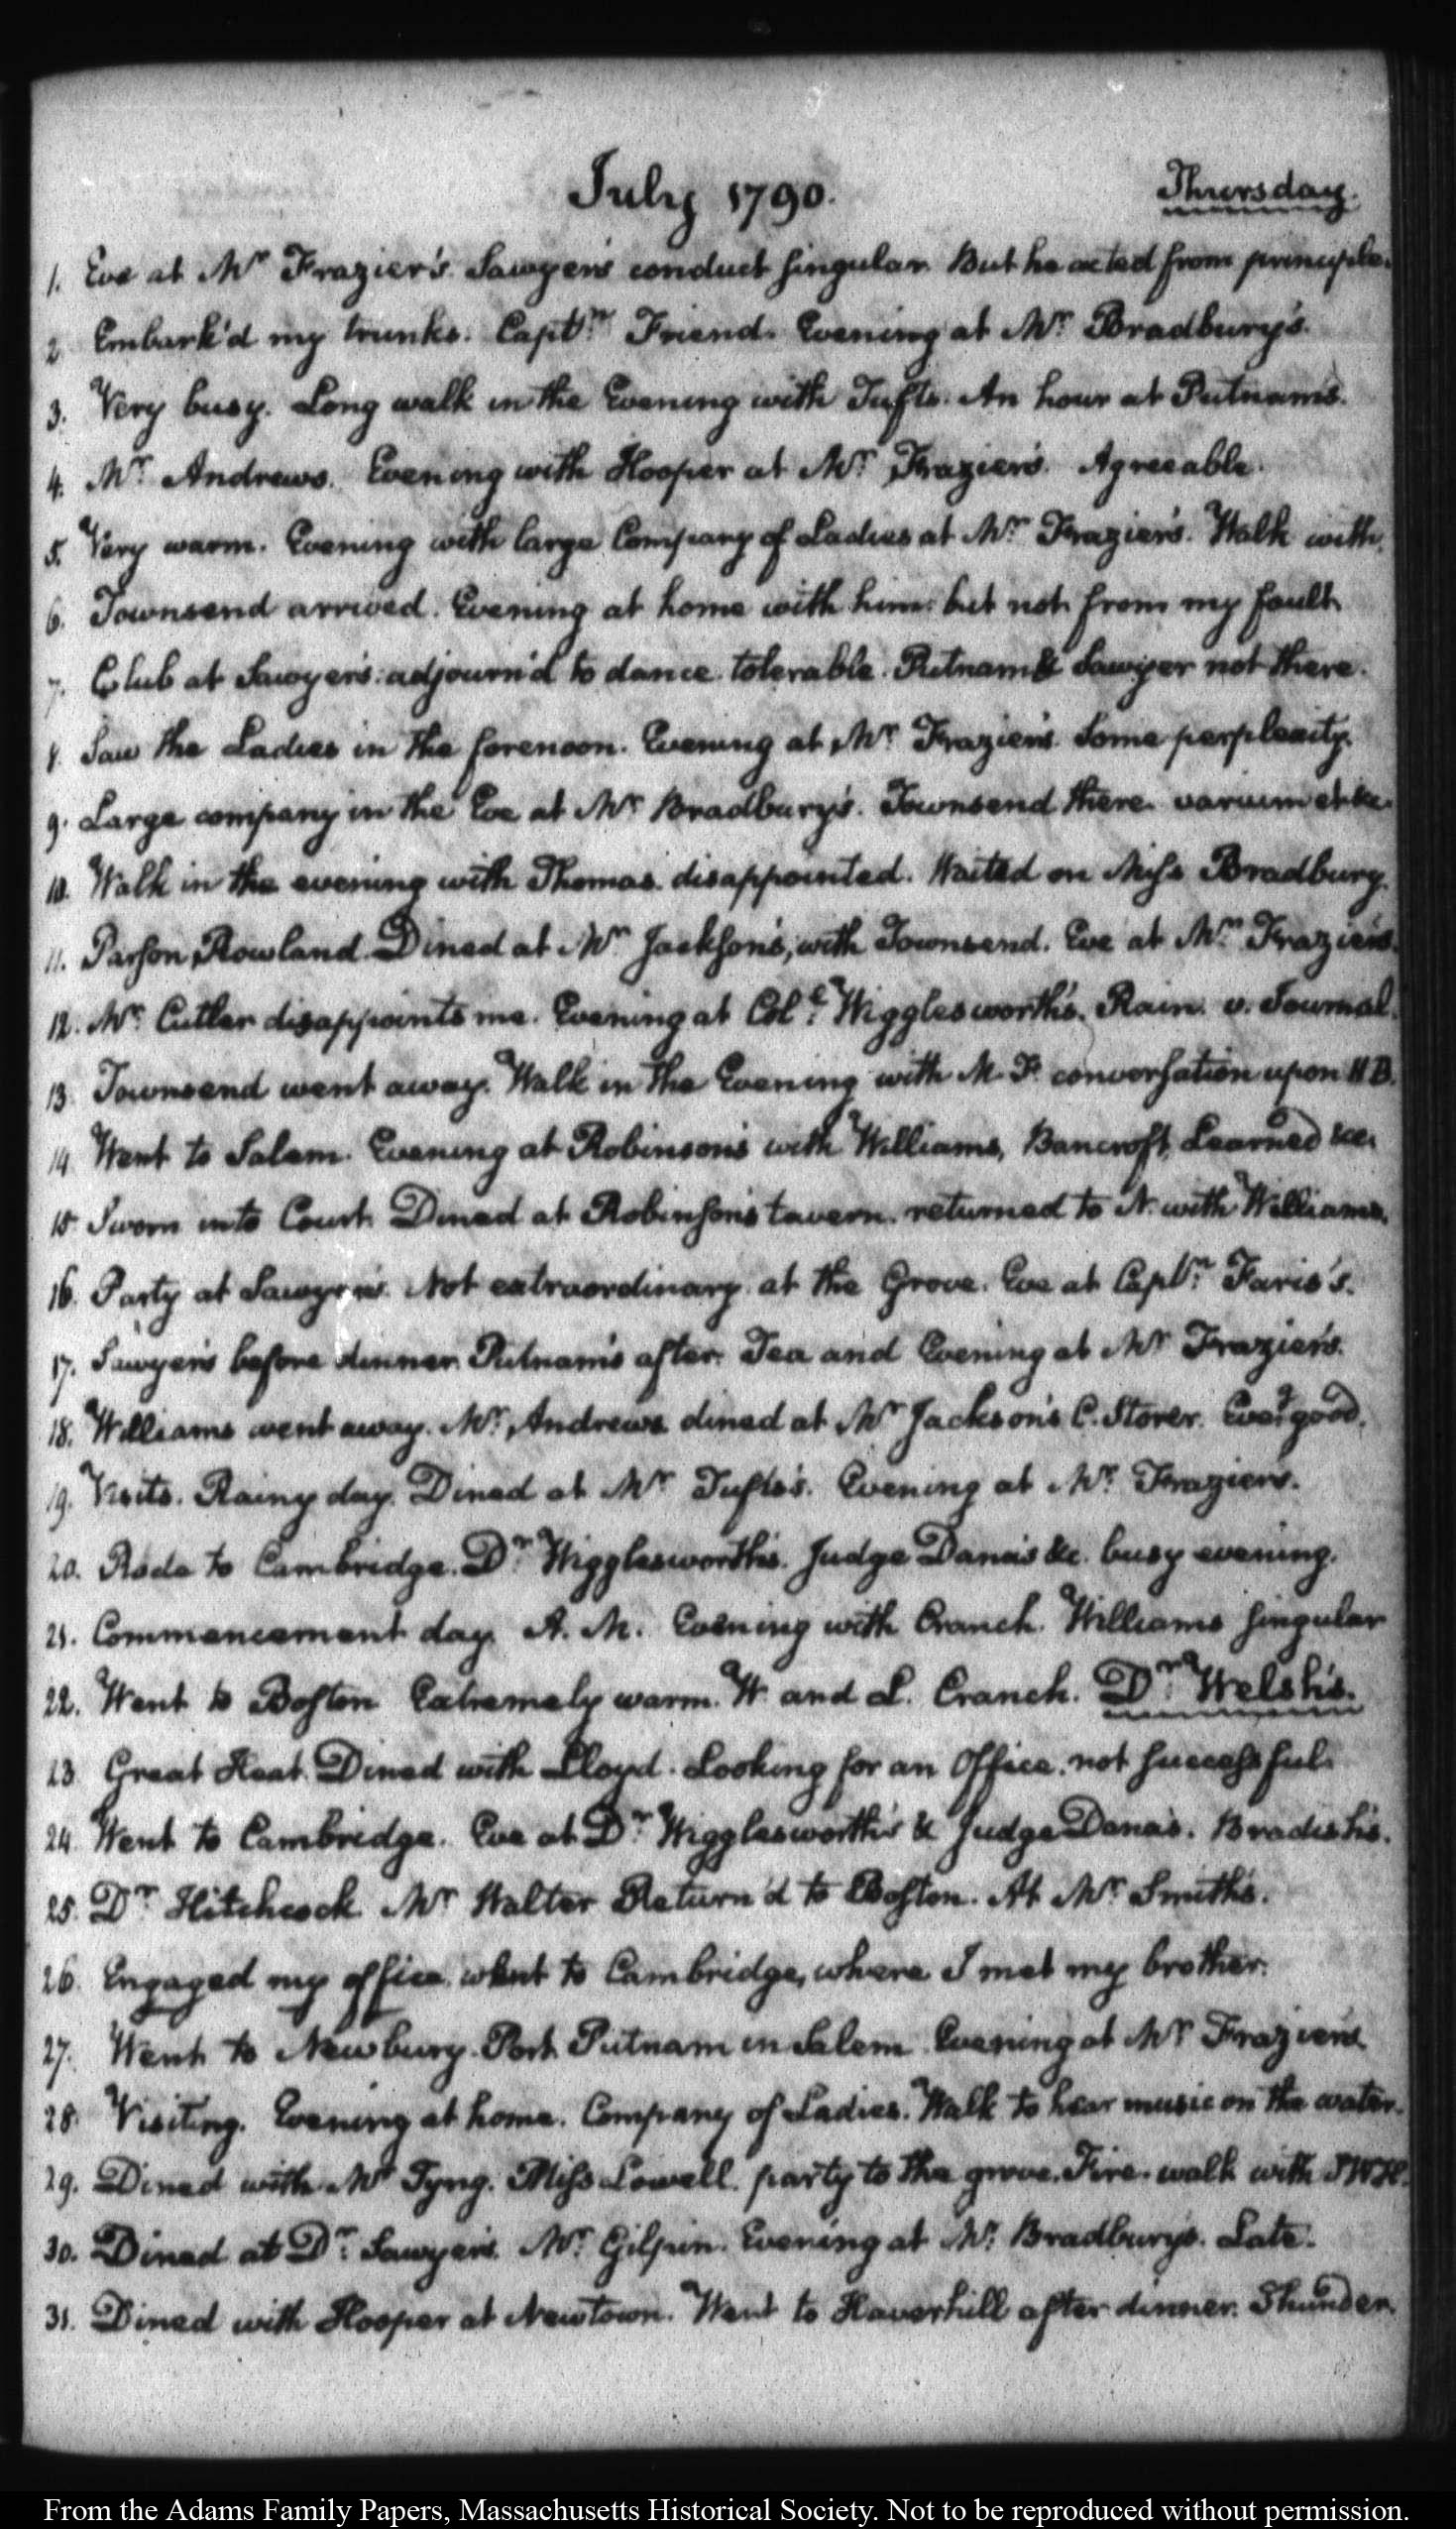 July 1790.
Thursday.
1. Eve at Mr Frazier's. Sawyer's conduct singular. But he acted from principle.
2. Embark'd my trunks. Captn. Friend. Evening at Mr. Bradbury's.
3. Very busy. Long walk in the Evening with Tufts. An hour at Putnam's.
4. Mr. Andrews. Evening with Hooper at Mr. Frazier's. Agreeable.
5. Very warm. Evening with large Company of Ladies at Mr. Frazier's. Walk with.
6. Townsend arrived. Evening at home with him: but not from my fault.
7. Club at Sawyer's: adjourn'd to dance. tolerable. Putnam & Sawyer not there.
8. Saw the Ladies in the forenoon. Evening at Mr Frazier's. Some perplexity.
9. Large company in the Eve at Mr Bradbury's. Townsend there. varium et &c.
10. Walk in the evening with Thomas. disappointed. Waited on Miss Bradbury.
11. Parson Rowland. Dined at Mr Jackson's, with Townsend. Eve at Mr Frazier's.
12. Mr. Cutler disappoints me. Evening at Coll. Wigglesworth's. Rain. v. Journal.
13. Townsend went away. Walk in the Evening with M. F. conversation upon
14. Went to Salem. Evening at Robinson's with Williams, Bancroft, Learned &c.
15. Sworn into Court. Dined at Robinson's tavern. returned to N. with Williams.
16. Party at Sawyer's. Not extraordinary. at the Grove. Eve at Captn. Faris's.
17. Sawyer's before dinner. Putnam's after. Tea and Evening at Mr Frazier's.
18. Williams went away. Mr. Andrews dined at Mr Jackson's C. Storer. good.
19. Visits. Rainy day. Dined at Mr Tufts's. Evening at Mr. Frazier's.
20. Rode to Cambridge. Dr. Wigglesworth's. Judge Dana's &c. busy evening.
21. Commencement day. A. M. Evening with Cranch. Williams singular
22. Went to Boston Extremely warm. W. and L. Cranch. Dr. Welsh's.
23. Great Heat. Dined with Lloyd. Looking for an Office. not successful.
24. Went to Cambridge. Eve at Dr. Wigglesworth's & Judge Dana's. Bradish's.
25. Dr. Hitchcock. Mr Walter. Return'd to Boston. At Mr Smith's.
26. Engaged my office. went to Cambridge, where I met my brother.
27. Went to Newbury-Port. Putnam in Salem. Evening at Mr Frazier's.
28. Visiting. Evening at home. Company of Ladies. Walk to hear music on the water.
29. Dined with Mr Tyng. Miss Lowell. party to the grove. Fire. walk with
30. Dined at Dr. Sawyer's. Mr. Gilpin. Evening at Mr Bradbury's. Late.
31. Dined with Hooper at Newtown. Went to Haverhill after dinner. Thunder.
From the Adams Family Papers, Massachusetts Historical Society. Not to be reproduced without permission.